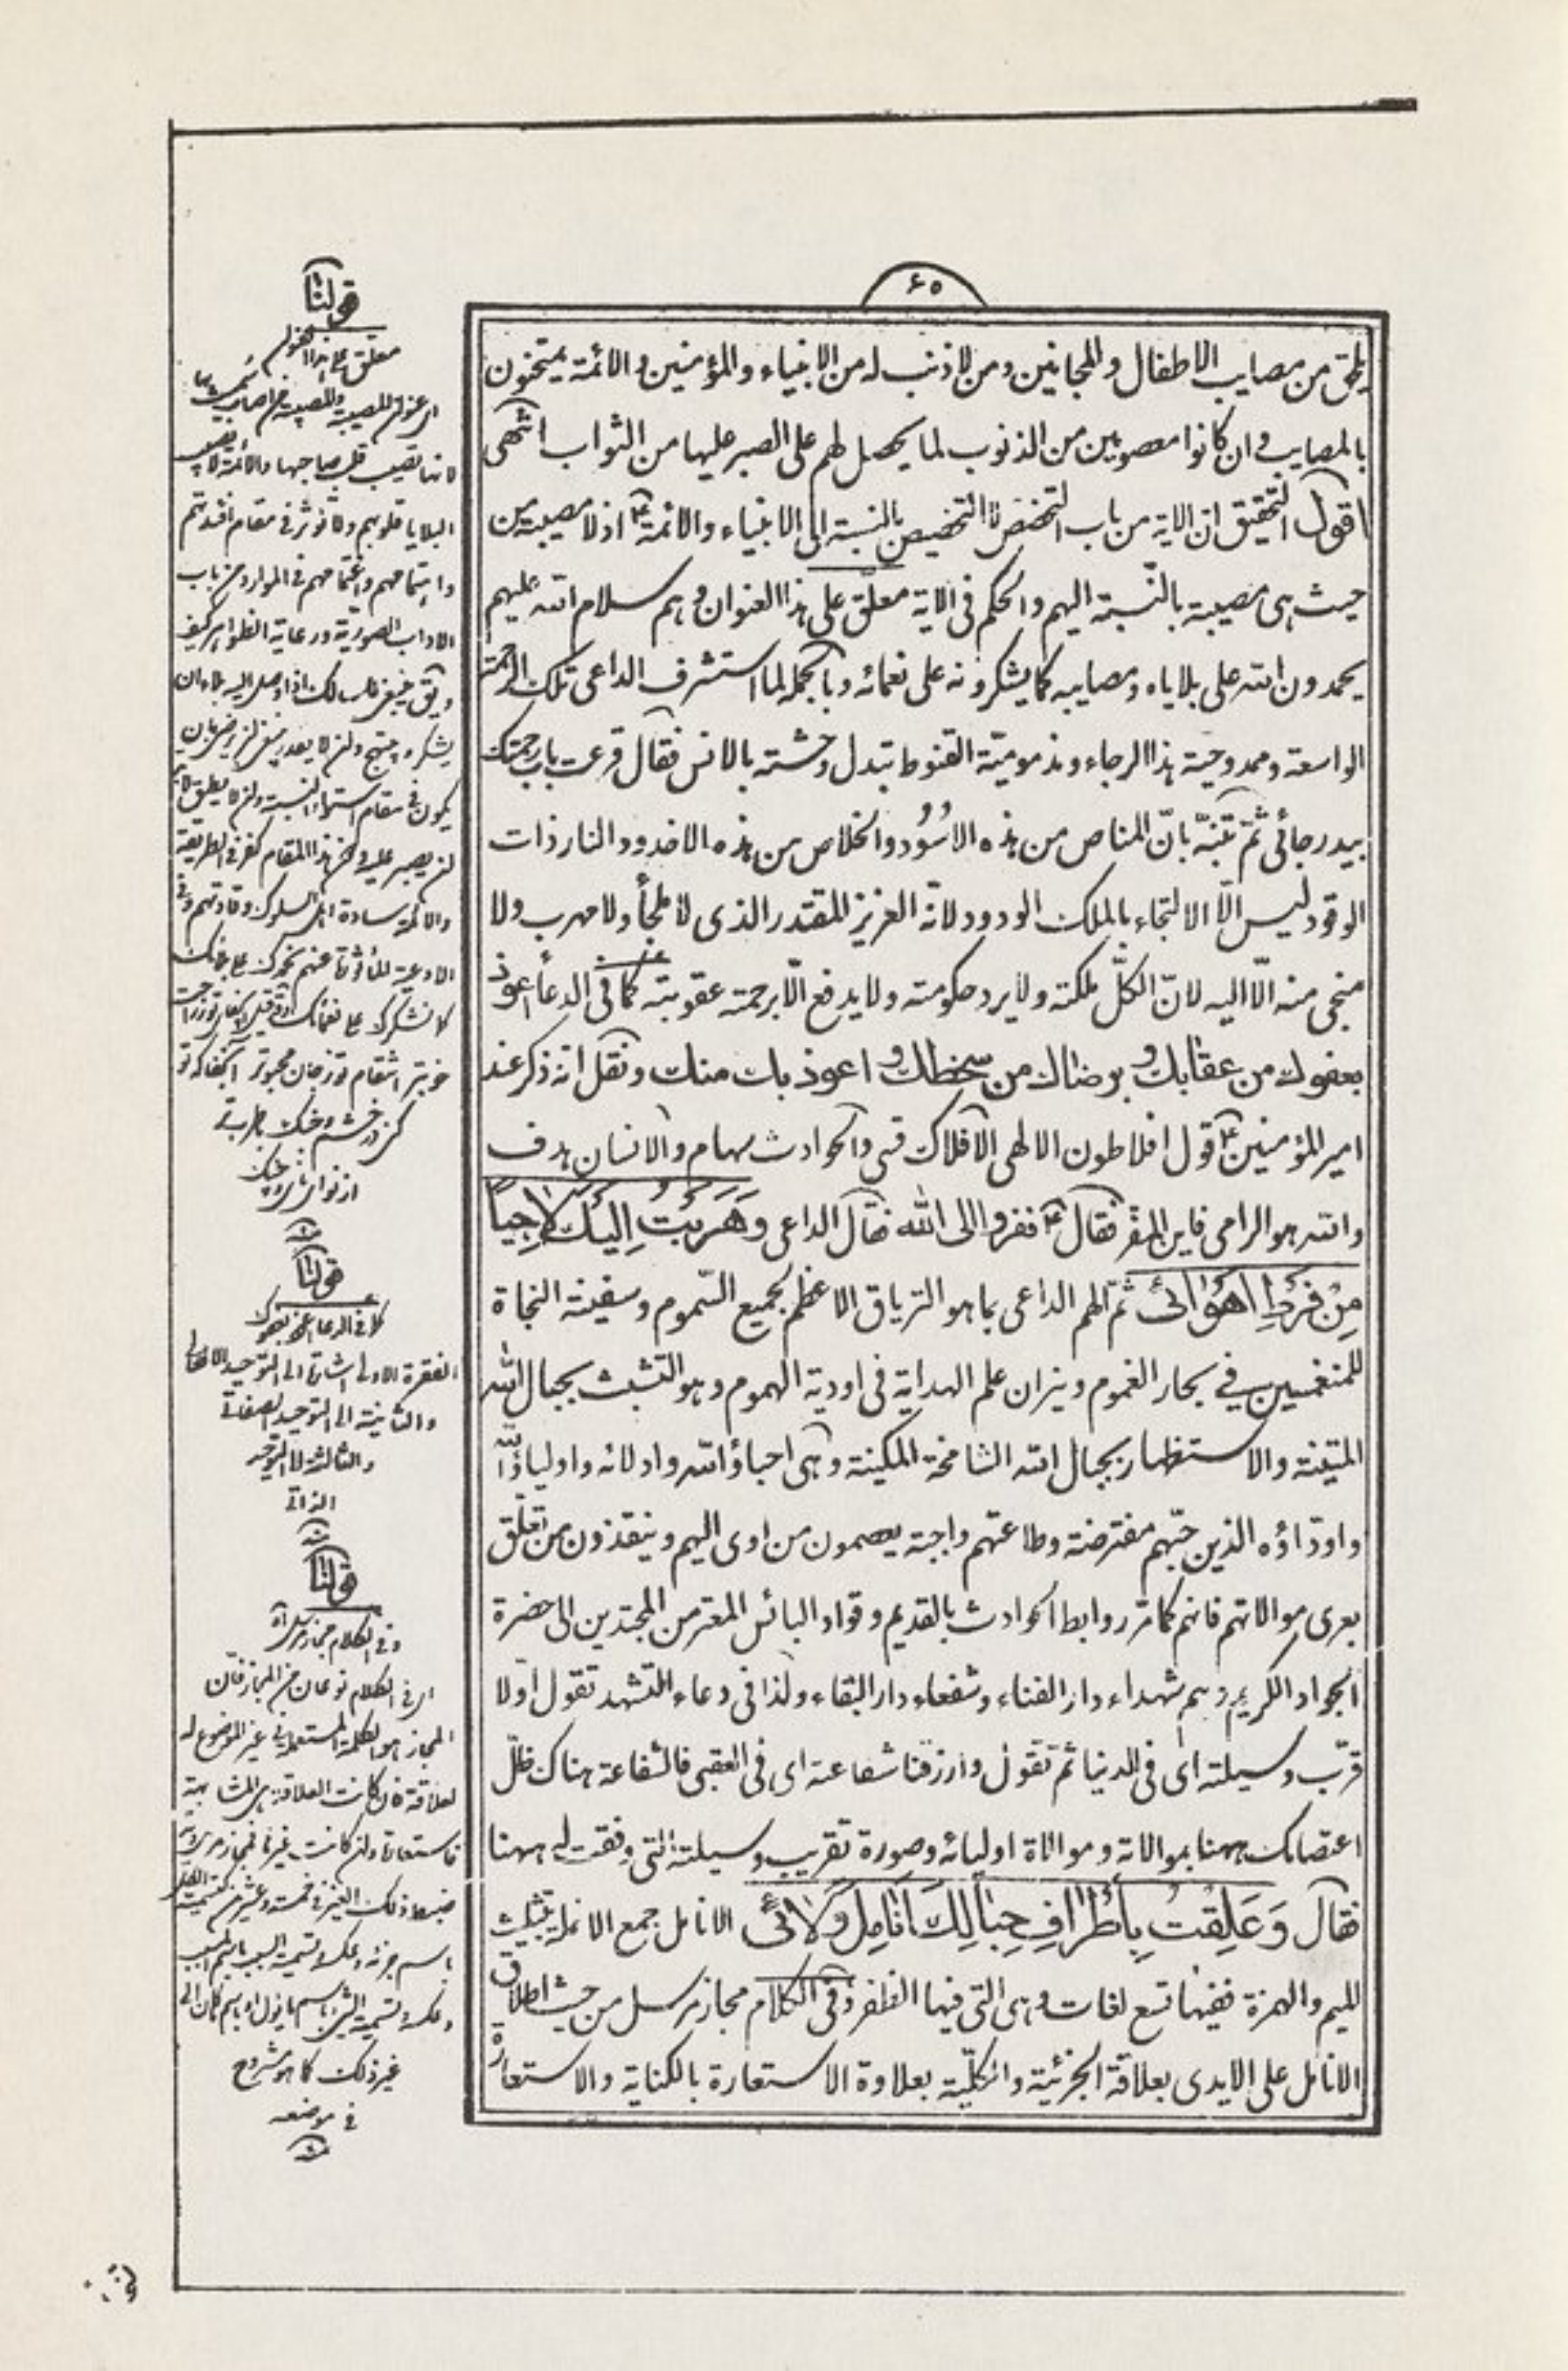 ۶۵
يلحق من مصايب الاطفال والمجانين ومن لا ذنب له من الانبياء والمؤمنين والائمة يمتحنون
بالمصايب وان كانوا معصومين من الذنوب لما يحصل لهم على الصبر عليها من الثواب انتهى
اقول التحقيق ان الاية من باب التخصص لا التخصيص بالنسبة الى الانبياء والائمة ع اذ لا مصيبة من
حيث هى مصيبة بالنّسبة اليهم والحكم فى الاية معلّق على هذا العنوان وهم سلام الله عليهم
يحمدون الله على بلاياه ومصايبه كما يشكرونه على نعمائه وبالجملة لما استشرف الداعى تلك الرحمة
الواسعة وممدوحية هذا الرجاء ومذموميّة القنوط تبدل وحشته بالانس فقال قرعت باب رحمتك
بيد رجائى ثمّ تنبّه بانّ المناص من هذه الاسُوُد والخلاص من هذه الاخدود النار ذات
الوقود ليس الّا الالتجاء بالملك الودود لانّه العزيز المقتدر الذى لا ملجأ ولا مهرب ولا
منجى منه الّا اليه لانّ الكلّ ملكته ولا يرد حكومته ولا يدفع الّا برحمته عقوبته كما فى الدعاء اعوذ
بعفوك من عقابك وبرضاك من سخطك واعوذ بك منك ونقل انه ذكر عند
امير المؤمنين ع قول افلاطون الالهى الافلاك قسى والحوادث سهام والانسان هدف
والله هو الرامى فاين المفرّ فقال ع ففروا الى الله فقال الداعى وَهَرَبْتُ اِلَيْكَ لاجِياً
مِنْ فَرْطِ اَهْوائى ثم الهم الداعى بما هو الترياق الاعظم لجميع السّموم وسفينة النجاة
للمنغمسين فى بحار الغموم ونيران علم الهداية فى اودية الهموم وهو التشبث بحبال الله
المتينة والاستظهار بجبال الله الشامخة المكينة وهى احباؤ الله وادلائه واولياؤ الله
واودّاؤه الذين حبّهم مفترضة وطاعتهم واجبة يعصمون من اوى اليهم وينقذون من تعلّق
بعرى موالاتهم فانهم كما مرّ روابط الحوادث بالقديم وقواد البائس المعتر من المجتدين الى حضرة
الجواد الكريم وهم شهداء دار الفناء وشفعاء دار البقاء ولذا فى دعاء التشهد تقول اولا
قرّب وسيلته اى فى الدنيا ثم تقول وارزقنا شفاعته اى فى العقبى فالشفاعة هناك ظلّ
اعتصامك ههنا بموالاته وموالاة اوليائه وصورة تقريب وسيلته التى وفقت له ههنا
فقال وَعَلِقَتْ بِأَطْرافِ حِبالِكَ اَنامِلُ وَلائى الانامل جمع الانملة بتثليث
الميم والهمزة ففيها تسع لغات وهى التى فيها الظفر وفى الكلام مجاز مرسل من حيث اطلاق
الانامل على الايدى بعلاقة الجزئية والكلّية بعلاوة الاستعارة بالكناية والاستعارة
قولنا
معلق على هذا العنوان
لانها تصيب قلب صاحبها والائمة
البلايا قلوبهم ولا تؤثر فى مقام افئدتهم
واهتمامهم واغتمامهم فى الموارد من باب
الاداب الصورية ورعاية الظواهر كيف
يكون فى مقام
لن يصبر عليه هذا المقام كفر فى الطريقة
والائمة سادة اهل السلوك وقادتهم وفى
الادعية المأثورة عنهم نحمدك على بلائك
كما نشكرك على نعمائك
قولنا
كما فى الدعاء اعوذ بعفوك
الفقرة الاولى اشارة الى التوحيد الافعالى
والثانية الى التوحيد الصفاتى
والثالثة الى التوحيد
الذاتى
قولنا
وفى الكلام مجاز مرسل
اى فى الكلام نوعان من المجاز فان
المجاز هو الكلمة المستعملة فى غير الموضوع له
لعلاقة فان كانت العلاقة هى المشابهة
فاستعارة وان كانت غيرها فمجاز مرسل
باسم جزئه وعكسه وتسمية السبب باسم المسبب
وعكسه وتسمية الشئ باسم ما يؤل اليه او باسم ما كان الى
غير ذلك كما هو مشروح
فى موضعه